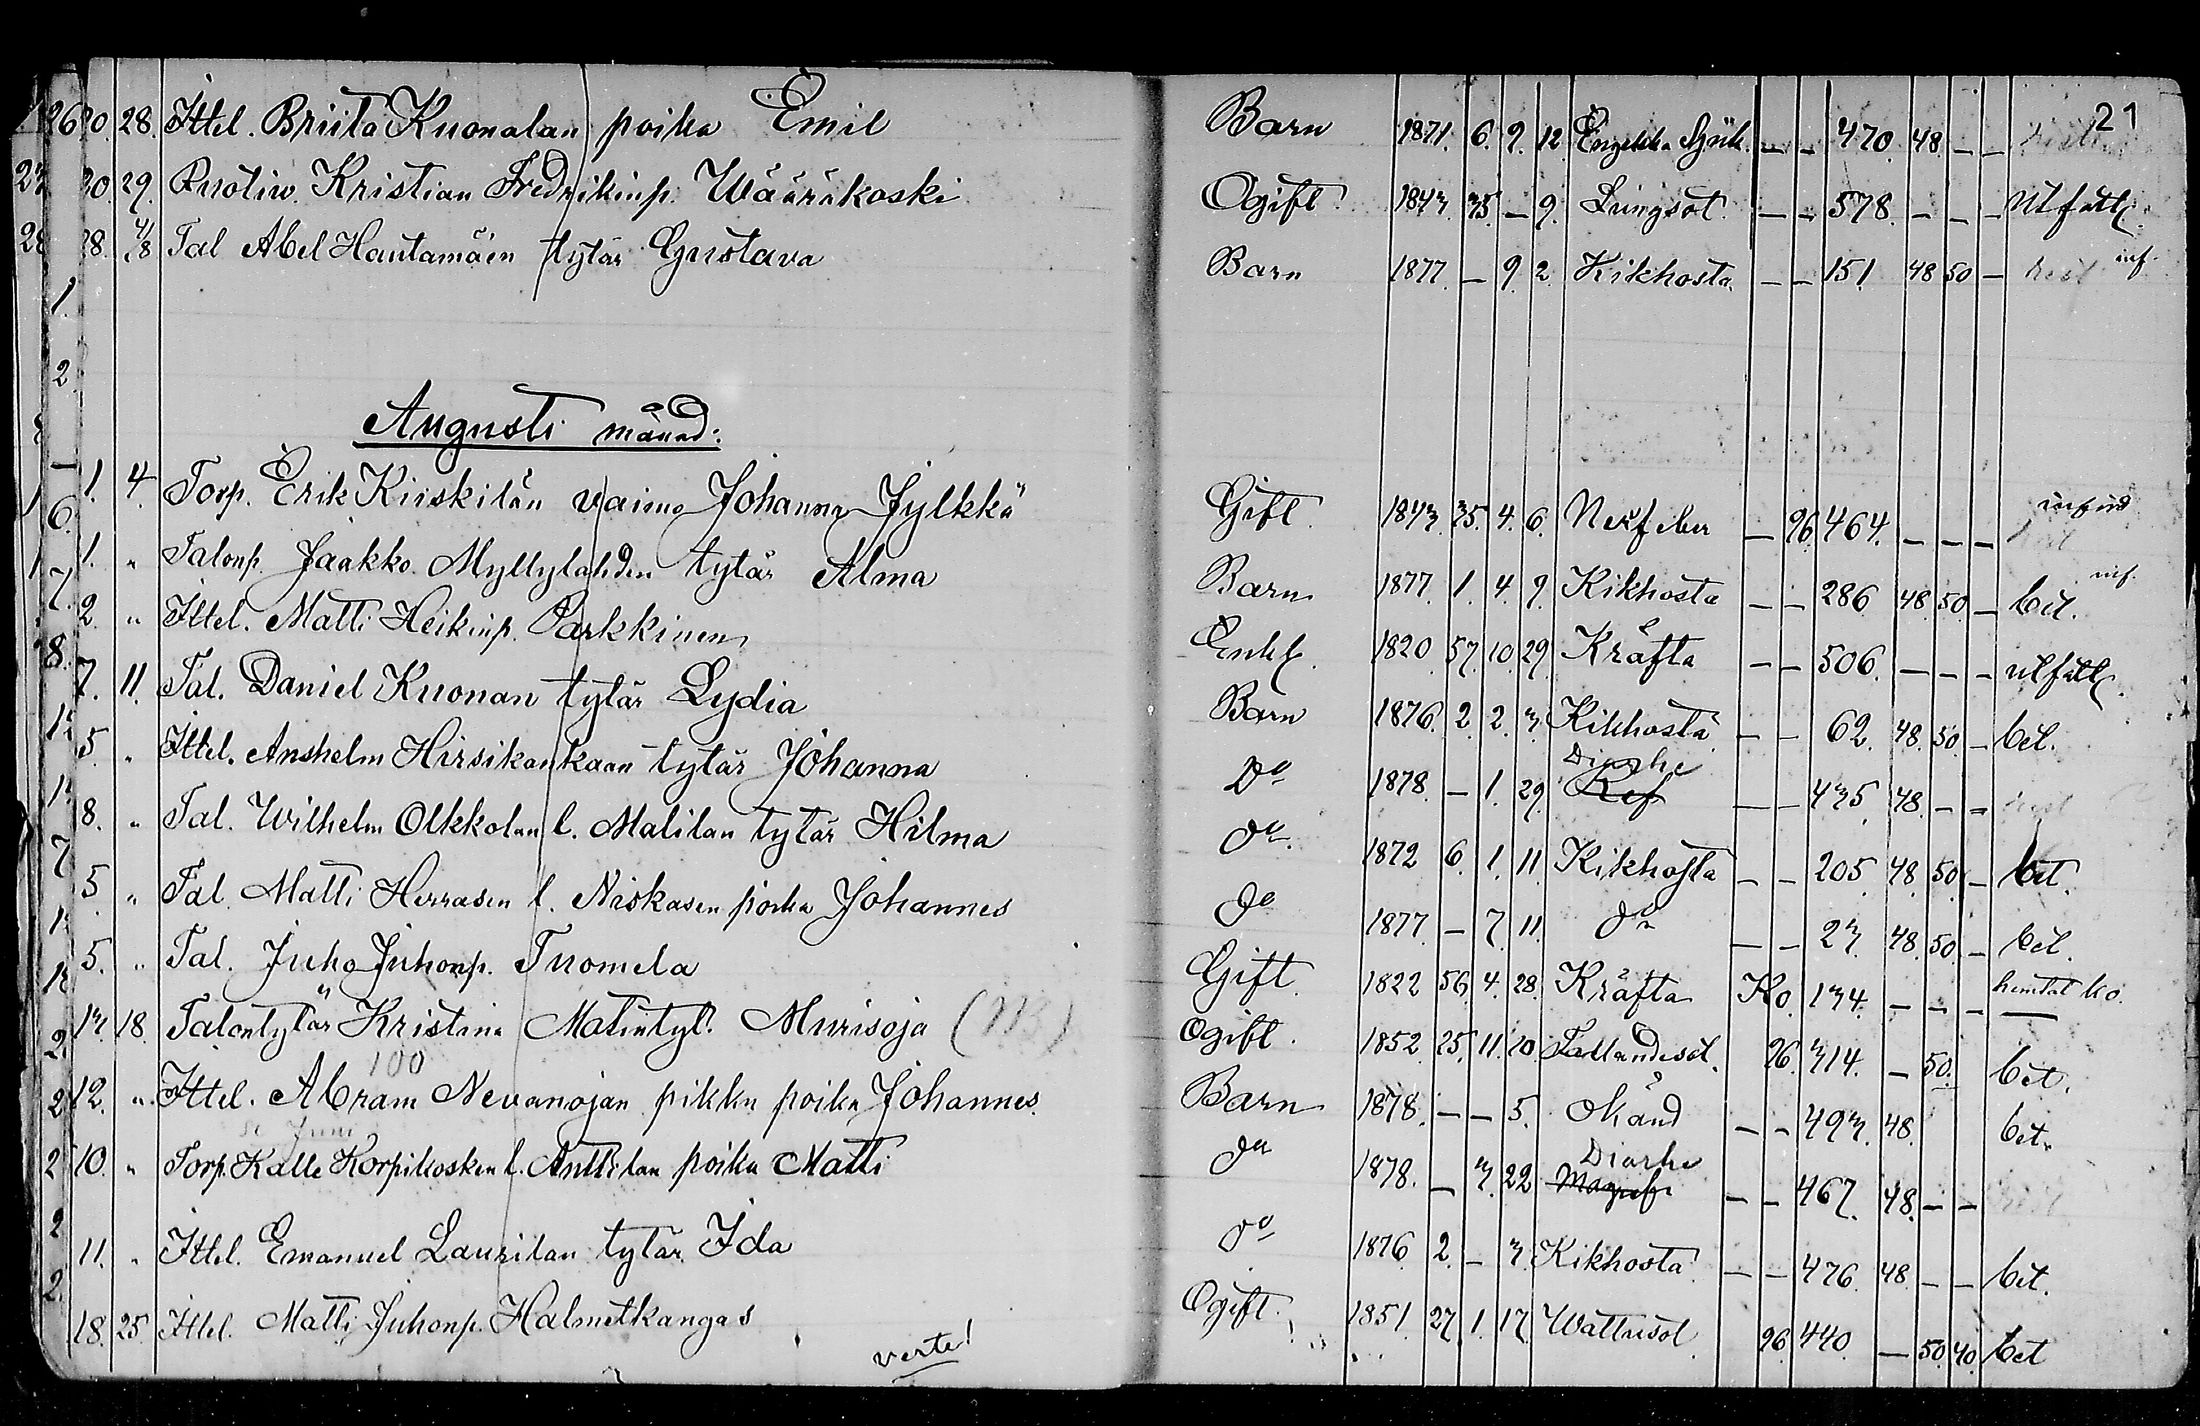 21
20. 28. Ittel. Briita Kuonalan poika Emil Barn 1871. 6. 9. 12 Engelska Sjuk. — — 470. 48. — —
30. 29. Ruotiv. Kristian Fredrikinp. Wääräkoski Ogift 1843. 35. — 9. Lungsot. — — 578. — — — utfatt.
28. 4/8 Tal Abel Hautamäen tytär Gustava Barn 1877. — 9. 2. Kikhosta. — — 151. 48 50 — inf.
Augusti månad:
1. 4. Torp. Erik Kiiskilän vaimo Johanna Jylkkä Gift. 1843. 35. 4. 6. Nerffeber — 96. 464. — — —
1. " Talonp. Jaakko Myllylahden tytär Alma Barn 1877. 1. 4. 9. Kikhosta — — 286 48. 50. — bet. inf.
2. " Ittel. Matti Heikinp. Parkkinen Enkl. 1820. 57. 10. 29. Kräfta — — 506. — — — utfatt.
7. 11. Tal. Daniel Kuonan tytär Lydia Barn 1876. 2. 2. 3. Kikhosta — — 62. 48. 50 — bet.
5. " Ittel. Anshelm Hirsikankaan tytär Johanna Do 1878. — 1. 29. Diarhe — — 435. 48. — —
8. " Tal. Wilhelm Olkkolan l. Malilan tytär Hilma Do. 1872 6. 1. 11. Kikhosta — — 205. 48. 50. — bet.
5 " Tal. Matti Herrasen l. Niskasen poika Johannes Do 1877. — 7. 11. Do — — 23. 48. 50. — bet.
5. " Tal. Juho Juhonp. Tuomela Gift. 1822 56. 4. 28. Kräfta Ko. 134. — — — hemtat ko.
13. 18. Talontytär Kristina Matintyt. Murisoja (NB) Ogift. 1852. 25. 11. 20. Fallandesot. 96. 314. — 50. bet.
100
12. " Ittel. Abram Nevanojan pikku poika Johannes. Barn 1878. — — 5. Okänd — — 493. 48. bet.
se Juni
10. " Torp. Kalle Korpikosken l. Anttilan poika Matti Do 1878. — 3. 22 Diarhe — — 467. 48. — —
11. " Ittel. Emanuel Laurilan tytär Ida Do 1876. 2. — 3. Kikhosta — — 476. 48. — — bet.
18. 25. Ittel. Matti Juhonp. Halmetkangas Ogift. 1851. 27. 1. 17. Wattusot 96. 440. — 50. 40. bet
verte!